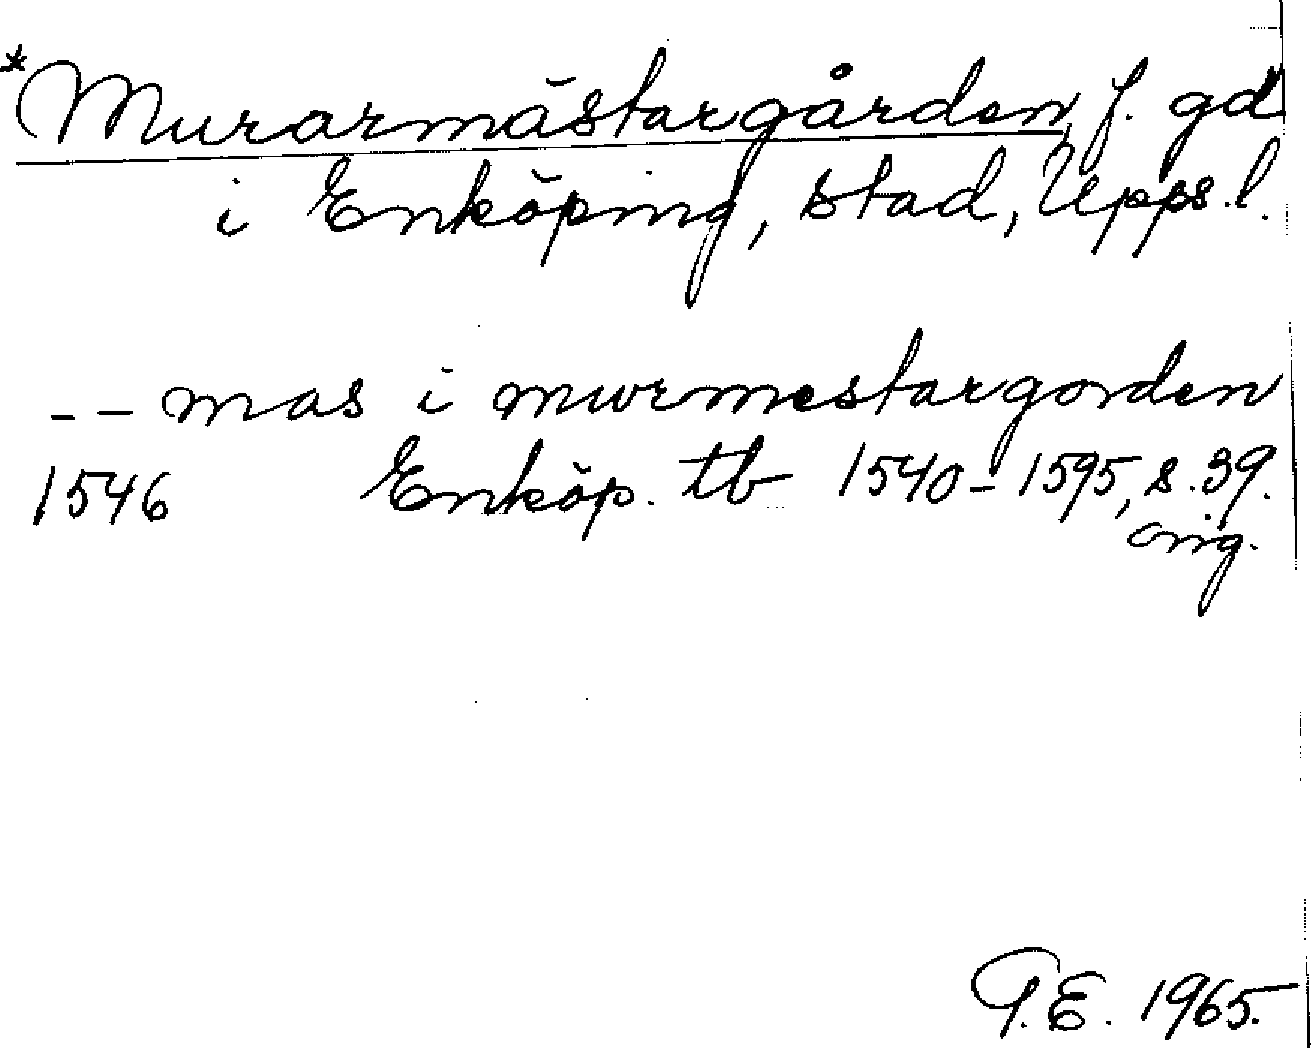 *Murarmästargården, f. gd
i Enköping, stad, Upps. l.
-- mas i murmestargorden
1546 Enköp. tb 1540-1595, s. 39.
orig.
P.E. 1965.